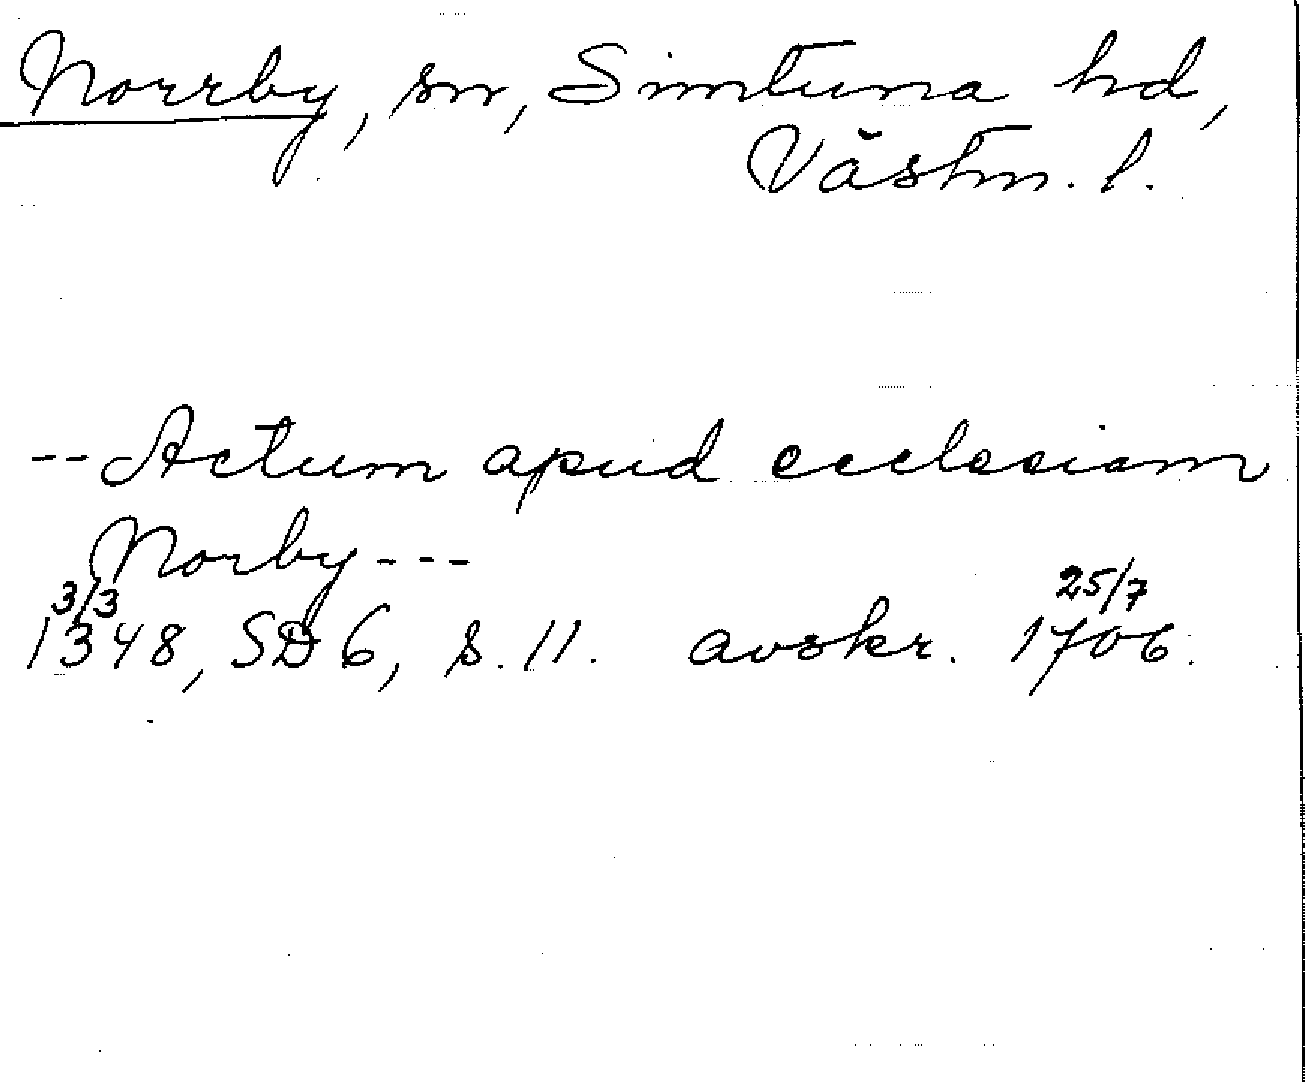 Norrby, sn, Simtuna hd,
Västm. l.
-- Actum apud ecclesiam
Norby ---
3/3 25/7
1348, SD 6, s. 11. avskr. 1706.